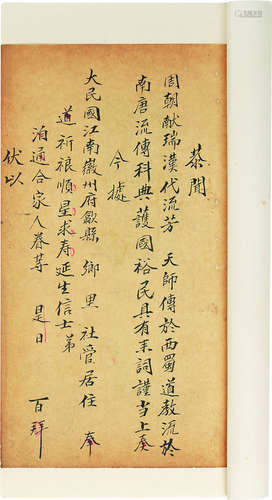 恭聞
周朝献瑞漢代流芳 天師傳於西蜀道教流於
南唐流傳科典護國裕民具有来詞謹当上奏
今據
大民國江南徽州府歙縣 鄉 里 社管居住 奉
道祈禳順星求寿延生信士弟
洎通合家人眷等 是日 百拜
伏以